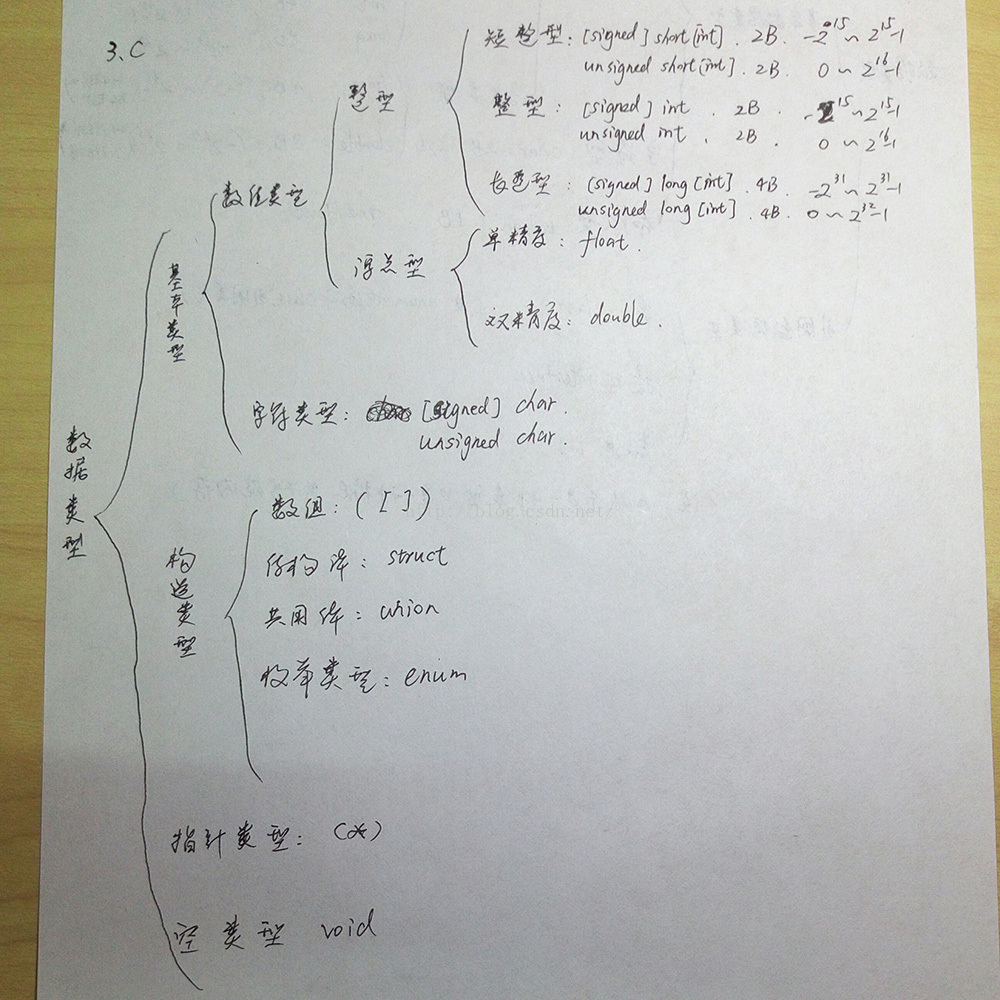 3、C
数据类型
基本类型
数值类型
整型
短整型: [signed] short [int] . 2B. -2^15 ~ 2^15-1
unsigned short [int] . 2B. 0 ~ 2^16-1
整型: [signed] int 2B . -2^15 ~ 2^15-1
unsigned int . 2B . 0 ~ 2^16-1
长整型: [signed] long [int] . 4B. -2^31 ~ 2^31-1
unsigned long [int] . 4B. 0 ~ 2^32-1
浮点型
单精度: float .
双精度: double .
字符类型: [signed] char .
unsigned char .
构造类型
数组: ( [ ] )
结构体: struct
共用体: union
枚举类型: enum
指针类型: (*)
空类型 void
http://blog.csdn.net/